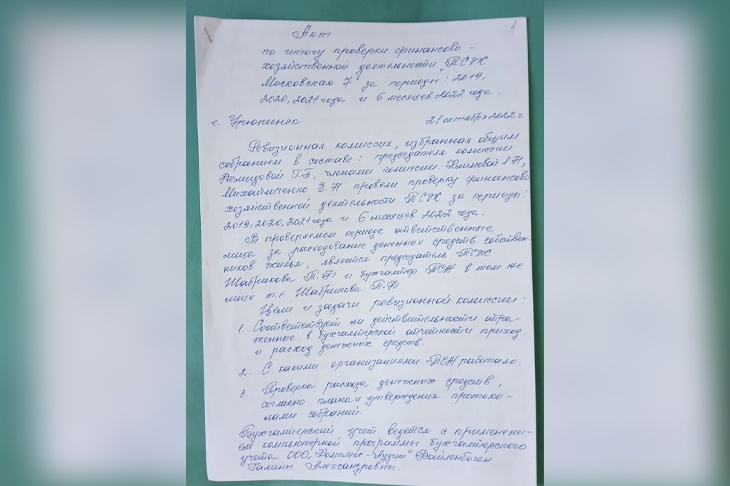 Акт
по итогу проверки финансово-
хозяйственной деятельности "ТСЖ
Московская 7" за периоды: 2019,
2020, 2021 года и 6 месяцев 2022 года.
г. Урюпинск 21 октября 2022 г
Ревизионная комиссия, избранная общим
собранием в составе: председателя комиссии
Г.Г., членами комиссии: Климовой Л.Н,
Михайличенко З.Н провели проверку финансово
хозяйственной деятельности ТСЖ за периоды:
2019, 2020, 2021 года и 6 месяцев 2022 года.
В проверяемом периоде ответственные
лица за расходование денежных средств собствен-
ников жилья, является председатель ТСЖ
Шабрикова П.Ф и бухгалтер ТСЖ в том же
лице т.е Шабрикова П.Ф
Цели и задачи ревизионной комиссии:
1. Соответствует ли действительности отра-
женные в бухгалтерской отчетности приход
и расход денежных средств.
2. С какими организациями ТСЖ работало.
3. Проверка расхода денежных средств,
согласно плана и утверждения протоко-
лами собраний.
Бухгалтерский учет ведется с применени-
ем компьютерной программы бухгалтерского
учета ООО "Комплекс-Аудит"
Галины Александровны.